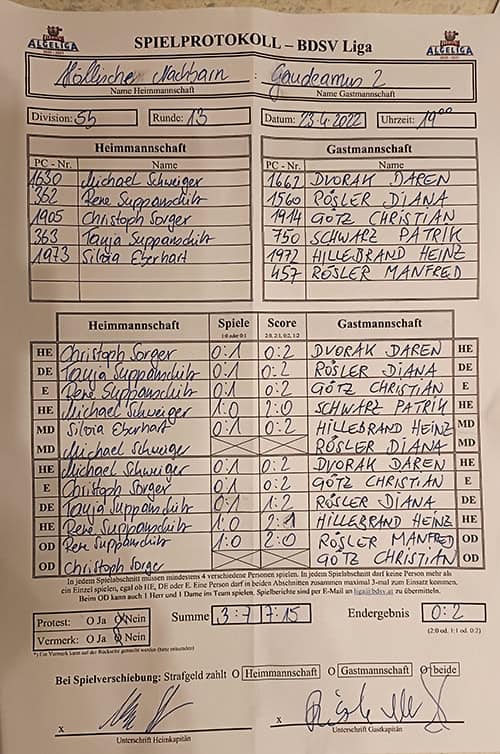 ALGELIGA
SPIELPROTOKOLL – BDSV Liga
ALGELIGA
Höllischer Nachbarn : Gaudeamus 2
Name Heimmannschaft Name Gastmannschaft
Division: 5b Runde: 13 Datum: 23.4.2022 Uhrzeit: 19⁰⁰
Heimmannschaft Gastmannschaft
PC - Nr. Name PC - Nr. Name
1630 Michael Schweiger 1662 DVORAK DAREN
362 Rene Suppanschitz 1560 RÖSLER DIANA
1905 Christoph Sorger 1914 GÖTZ CHRISTIAN
363 Tanja Suppanschitz 750 SCHWARZ PATRIK
1973 Silvia Eberhart 1972 HILLEBRAND HEINZ
457 RÖSLER MANFRED
Heimmannschaft Spiele Score Gastmannschaft
1:0 oder 0:1 2:0, 2:1, 0:2, 1:2
HE Christoph Sorger 0:1 0:2 DVORAK DAREN HE
DE Tanja Suppanschitz 0:1 0:2 RÖSLER DIANA DE
E Rene Suppanschitz 0:1 0:2 GÖTZ CHRISTIAN E
HE Michael Schweiger 1:0 2:0 SCHWARZ PATRIK HE
MD Silvia Eberhart 0:1 0:2 HILLEBRAND HEINZ MD
MD Michael Schweiger RÖSLER DIANA MD
HE Michael Schweiger 0:1 0:2 DVORAK DAREN HE
E Christoph Sorger 0:1 0:2 GÖTZ CHRISTIAN E
DE Tanja Suppanschitz 0:1 1:2 RÖSLER DIANA DE
HE Rene Suppanschitz 1:0 2:1 HILLEBRAND HEINZ HE
OD Rene Suppanschitz 1:0 2:0 RÖSLER MANFRED OD
OD Christoph Sorger GÖTZ CHRISTIAN OD
In jedem Spielabschnitt müssen mindestens 4 verschiedene Personen spielen. In jedem Spielabschnitt darf keine Person mehr als
ein Einzel spielen, egal ob HE, DE oder E. Eine Person darf in beiden Abschnitten zusammen maximal 3-mal zum Einsatz kommen.
Beim OD kann auch 1 Herr und 1 Dame im Team spielen. Spielberichte sind per E-Mail an liga@bdsv.at zu übermitteln.
Protest: O Ja O Nein Summe 3:7 7:15 Endergebnis 0:2
Vermerk: O Ja O Nein (2:0 od. 1:1 od. 0:2)
*) Ein Vermerk kann auf der Rückseite gemacht werden (bitte ankreuzen)
Bei Spielverschiebung: Strafgeld zahlt O Heimmannschaft O Gastmannschaft O beide
x x
Unterschrift Heimkapitän Unterschrift Gastkapitän